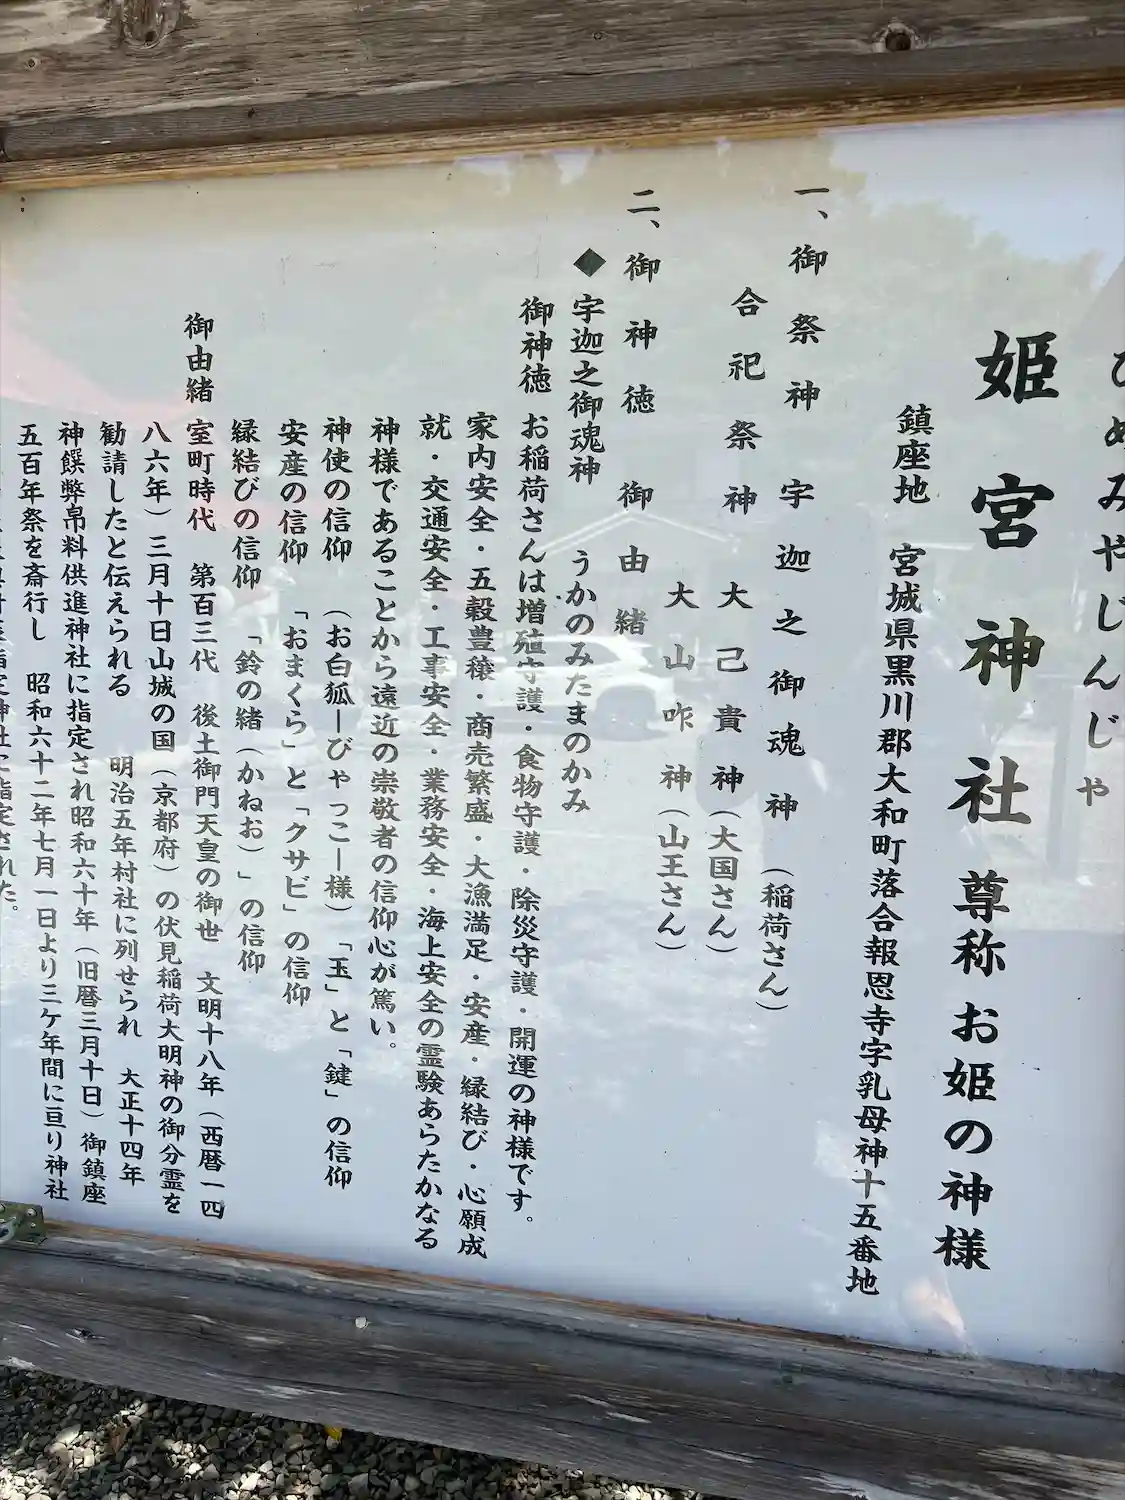 ひめみやじんじゃ
姫宮神社 尊称お姫の神様
鎮座地 宮城県黒川郡大和町落合報恩寺字乳母神十五番地
一、御祭神 宇迦之御魂神（稲荷さん）
合祀祭神 大己貴神（大国さん）
大山咋神（山王さん）
二、御神徳 御由緒
◆宇迦之御魂神 うかのみたまのかみ
御神徳 お稲荷さんは増殖守護・食物守護・除災守護・開運の神様です。
家内安全・五穀豊穣・商売繁盛・大漁満足・安産・縁結び・心願成
就・交通安全・工事安全・業務安全・海上安全の霊験あらたかなる
神様であることから遠近の崇敬者の信仰心が篤い。
神使の信仰 （お白狐ーびゃっこー様）「玉」と「鍵」の信仰
安産の信仰 「おまくら」と「クサビ」の信仰
縁結びの信仰 「鈴の緒（かねお）」の信仰
御由緒 室町時代 第百三代 後土御門天皇の御世 文明十八年（西暦一四
八六年）三月十日山城の国（京都府）の伏見稲荷大明神の御分霊を
勧請したと伝えられる 明治五年村社に列せられ 大正十四年
神饌弊帛料供進神社に指定され昭和六十年（旧暦三月十日）御鎮座
五百年祭を斎行し 昭和六十二年七月一日より三ケ年間に亘り神社
神社に指定された。